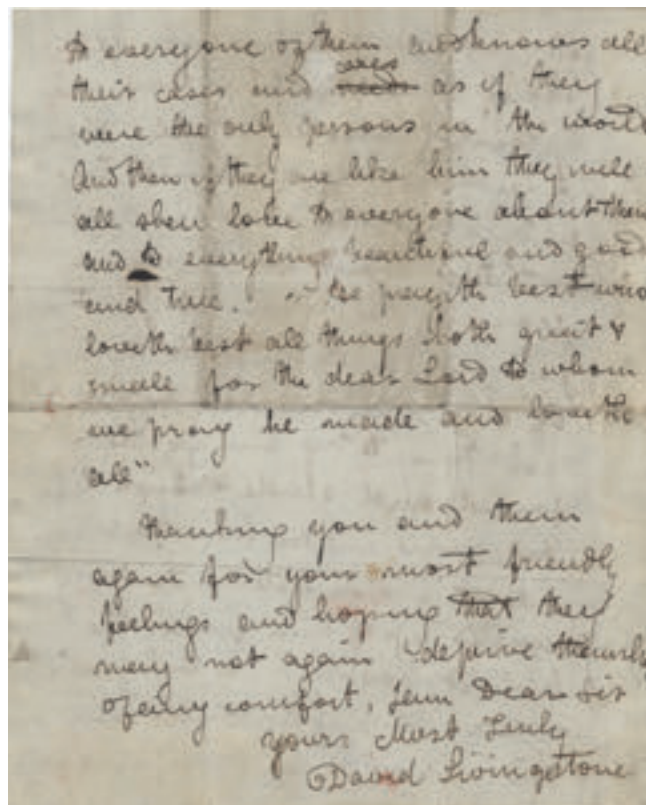 to everyone of them and knows all
their cares and needs as if they
were the only persons in the world
And then if they are like him they will
all show love to everyone about them
and to everything beautiful and good
and true. "He prayeth best who
loveth best all things both great &
small for the dear Lord to whom
we pray he made and loveth
all"
Thanking you and them
again for your most friendly
feelings and hoping that they
may not again deprive themselves
of any comfort, Dear Sir
yours Most Truly
David Livingstone